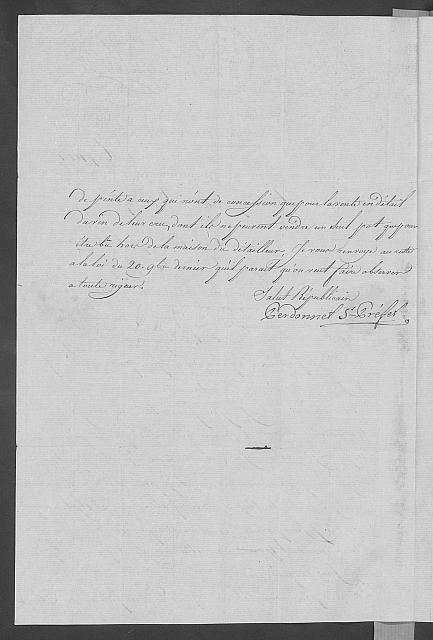 de pinte a ceux qui n'ont de concession que pour la vente en détail
du vin de leur cru, dont ils ne peuvent vendre un seul pot que pour
être bu hors de la maison du détailleur. Je vous renvoye au reste
a la loi du 20. 9bre dernier qu'il parait qu'on veut faire observer
a toute rigueur.
Salut Républicain
Perdonnet Ss. Préfet